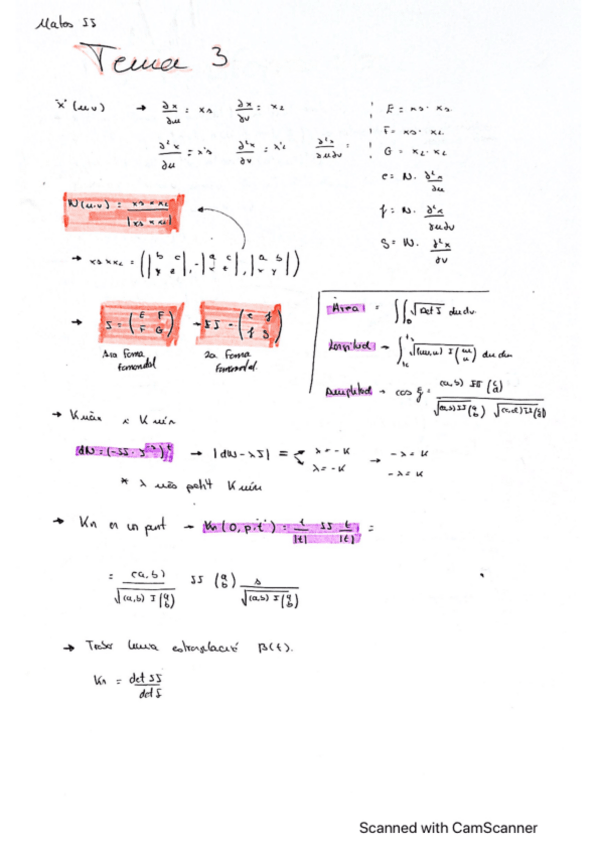 Mates II
Tema 3
x(u,v) → ∂x/∂u = x₁ ∂x/∂v = x₂
E = x₁ · x₁
F = x₁ · x₂
∂²x/∂u ∂²x/∂v ∂²x/∂u∂v =
G = x₂ · x₂
e = N · ∂²x/∂u
f = N · ∂²x/∂u∂v
g = N · ∂²x/∂v
N(u,v) = x₁ × x₂ / |x₁ × x₂|
→ x₁ × x₂ = (|b c / y z|, -|a c / x z|, |a b / x y|)
→ I = (E F / F G) → II = (e f / f g)
1a Forma fonamental 2a Forma fonamental.
Àrea = ∬ √Det I du dv
Longitud → ∫ √(u,v) I (u/v) du dv
Amplitud → cos = (a,b) II (c/d) / √(a,b) II (a/b) √(c,d) II (c/d)
→ Kmàx i Kmín
dN = (-II · I⁻¹)ᵗ → |dN - λI| = λ = -K λ = -K → -λ = K -λ = K
* λ més petit Kmín
→ Kn en un punt → Kn(0, p, t) = t/|t| II t/|t| =
= (a,b) / √(a,b) I (a/b) II (a/b) 1 / √(a,b) I (a/b)
→ Trobar línia β(t).
Kn = det II / det I
Scanned with CamScanner